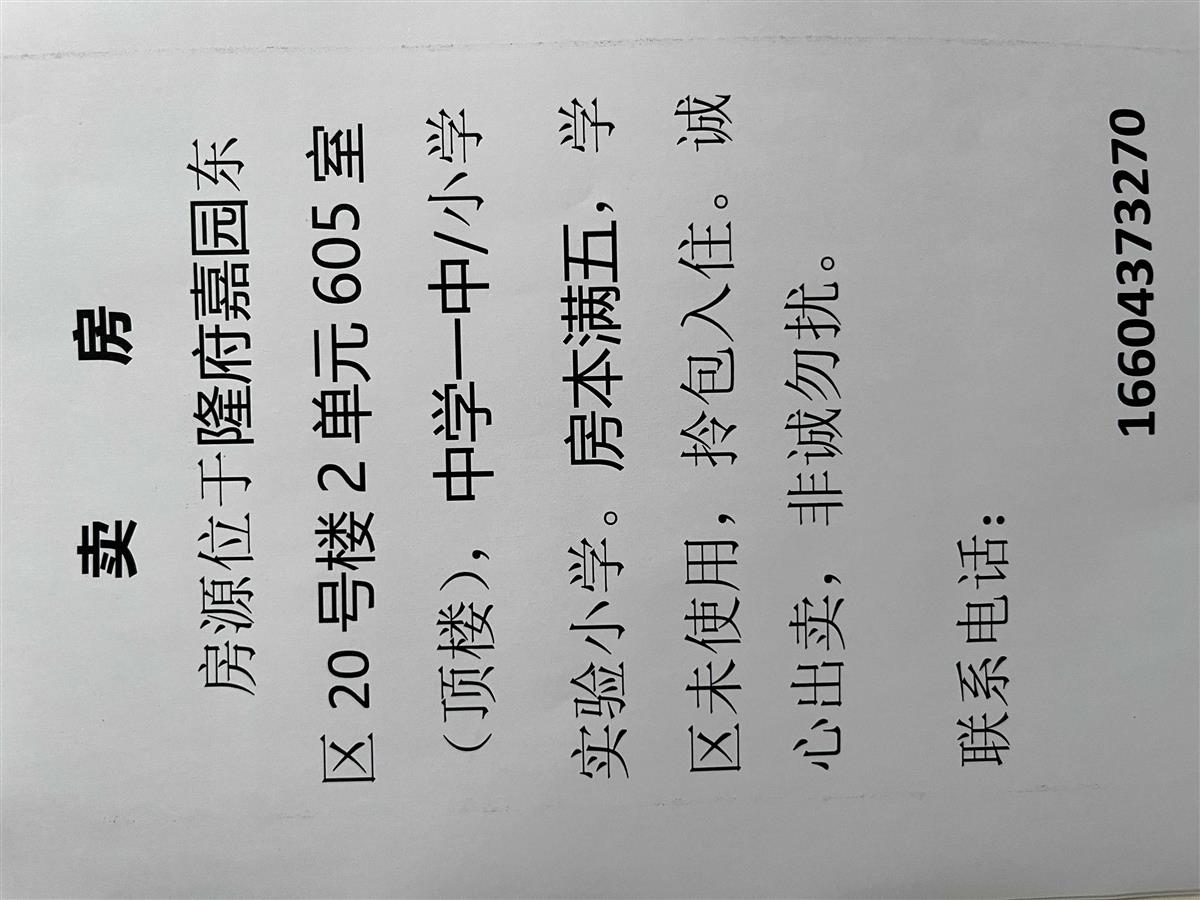 卖 房
房源位于隆府嘉园东
区 20 号楼 2 单元 605 室
（顶楼），中学一中/小学
实验小学。房本满五，学
区未使用，拎包入住。诚
心出卖，非诚勿扰。
联系电话：
16604373270